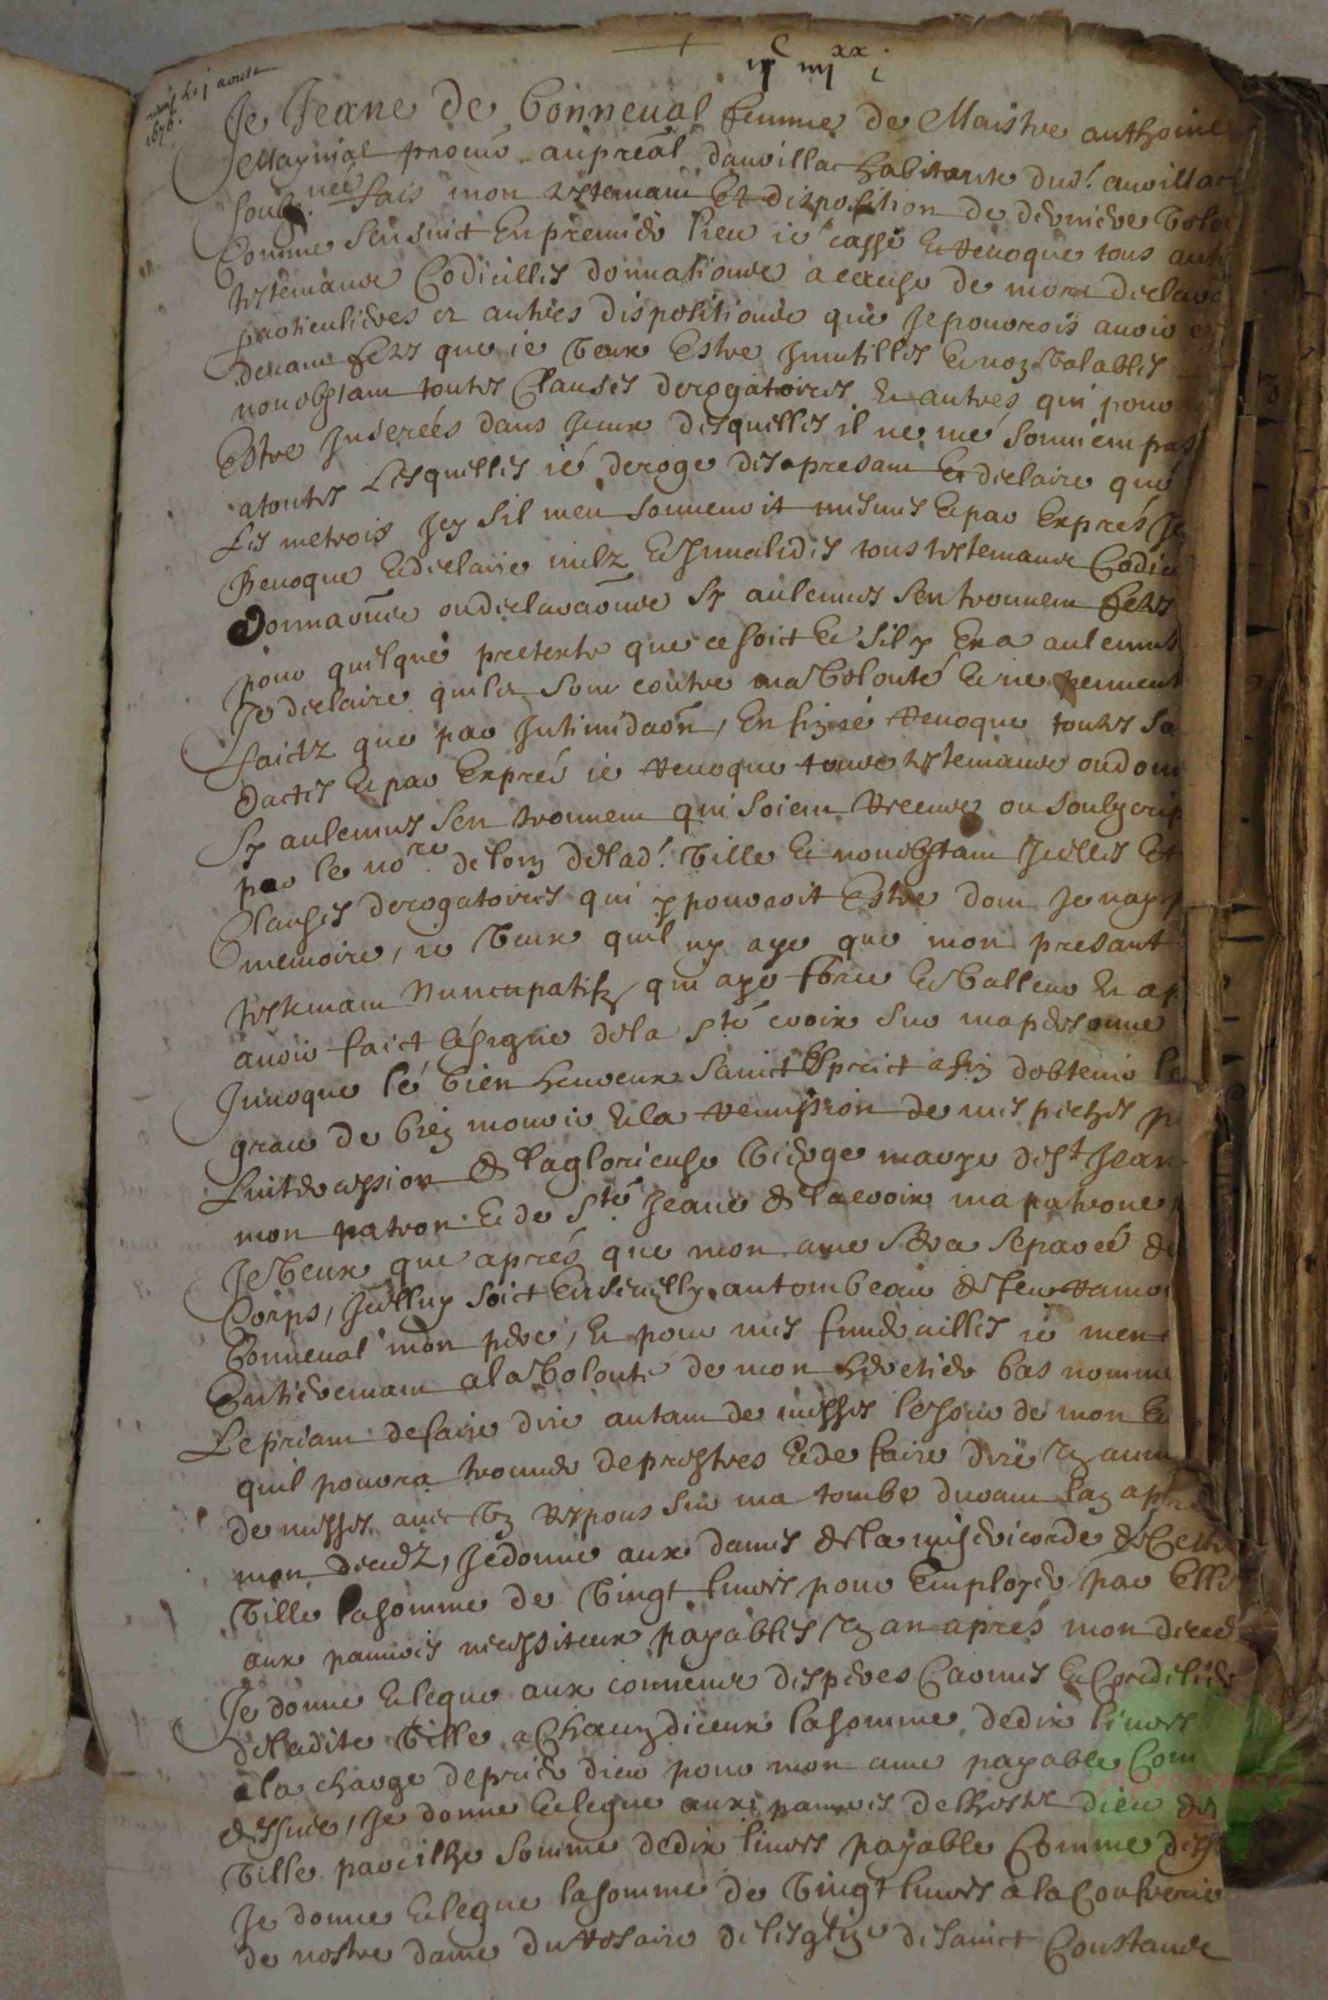 iiᶜ iiiiˣˣ i
aoust
1676.
Je Jeane de Bonneval femme de Maistre anthoine
Maynial procur. au preal. d'auvillar habitante dud. auvillar
soubz.née fais mon testemant et disposition de derniere volon
Comme sensuict En premier lieu ie casse et revoque tous aut
testemans Codicilles donnations a cause de mort declara
particulieres et autres dispositions que Je pourrois avoir cy
devant fetz que ie veux Estre Inutilles et non valables
nonobstant toutes Clauses derogatoires et autres qui pouro
Estre Inserées dans Iceux desquelles il ne me souvient pas
a toutes Lesquelles ié deroge des apresant et declaire que
Les metrois Icy sil men souvenoit mesmes et par Exprés Je
Revoque et declaire nulz et Invalides tous testemans Codic
Donnaons ou declaraons sy aulcunes sen trouvent fetes
pour quelque pretexte que ce soict et sil y En a aulcunes
Je declaire quiles sont contre ma volonté et ne peuvent
faictz que par Intimidaon, En fin ie revoque toutes so
dactes et par Exprés ie revoque tous testemans ou don
Sy aulcunes sen trouvent qui soient receus ou soubzcrip
par le no.re de lom de lad. ville et nonobstant Icelles et
Clauses derogatoires qui y pouroit Estre dont Je nay p
memoire, ie veux quil ny aye que mon presant
testemant Nuncupatif qui aye force et valleur et ap
avoir faict le signe de la s.te croix sur ma personne
Invoque le bien heureux sainct Esprict afin dobtenir le
grace de bien mourir et la remission de mes peches p
Lintercession de la glorieuse vierge marye de s.t Jean
mon patron et de s.te Jeane de la croix ma patrone
Je veux que aprés que mon ame sera separée de
Corps, Icelluy soict Ensevelly au tombeau de feu ramo
Bonneval mon pere, et pour mes funerailles ie men
Entieremant a la volonté de mon heretier bas nommé
Le priant de faire dire autant de messes le jour de mon
quil poura trouver de prestres et de faire dire un
de messes avec un respons sur ma tombe durant lan apré
mon decedz, Je donne aux dames de la misericorde de Ceste
ville la somme de vingt livres pour Employer par Elle
aux pauvres necessiteux payables un an aprés mon deced
Je donne et legue aux convens des peres Carmes et Cordelier
de ladite ville a Chacun diceux la somme de dix livres
a la charge de prier dieu pour mon ame payable Com
dessus, Je donne et legue aux pauvres de lhostel dieu de
ville pareilhe somme de dix livres payable Comme dess
Je donne et legue la somme de vingt livres a la Confrerie
de nostre dame du rosaire de lesglize de sainct Constans